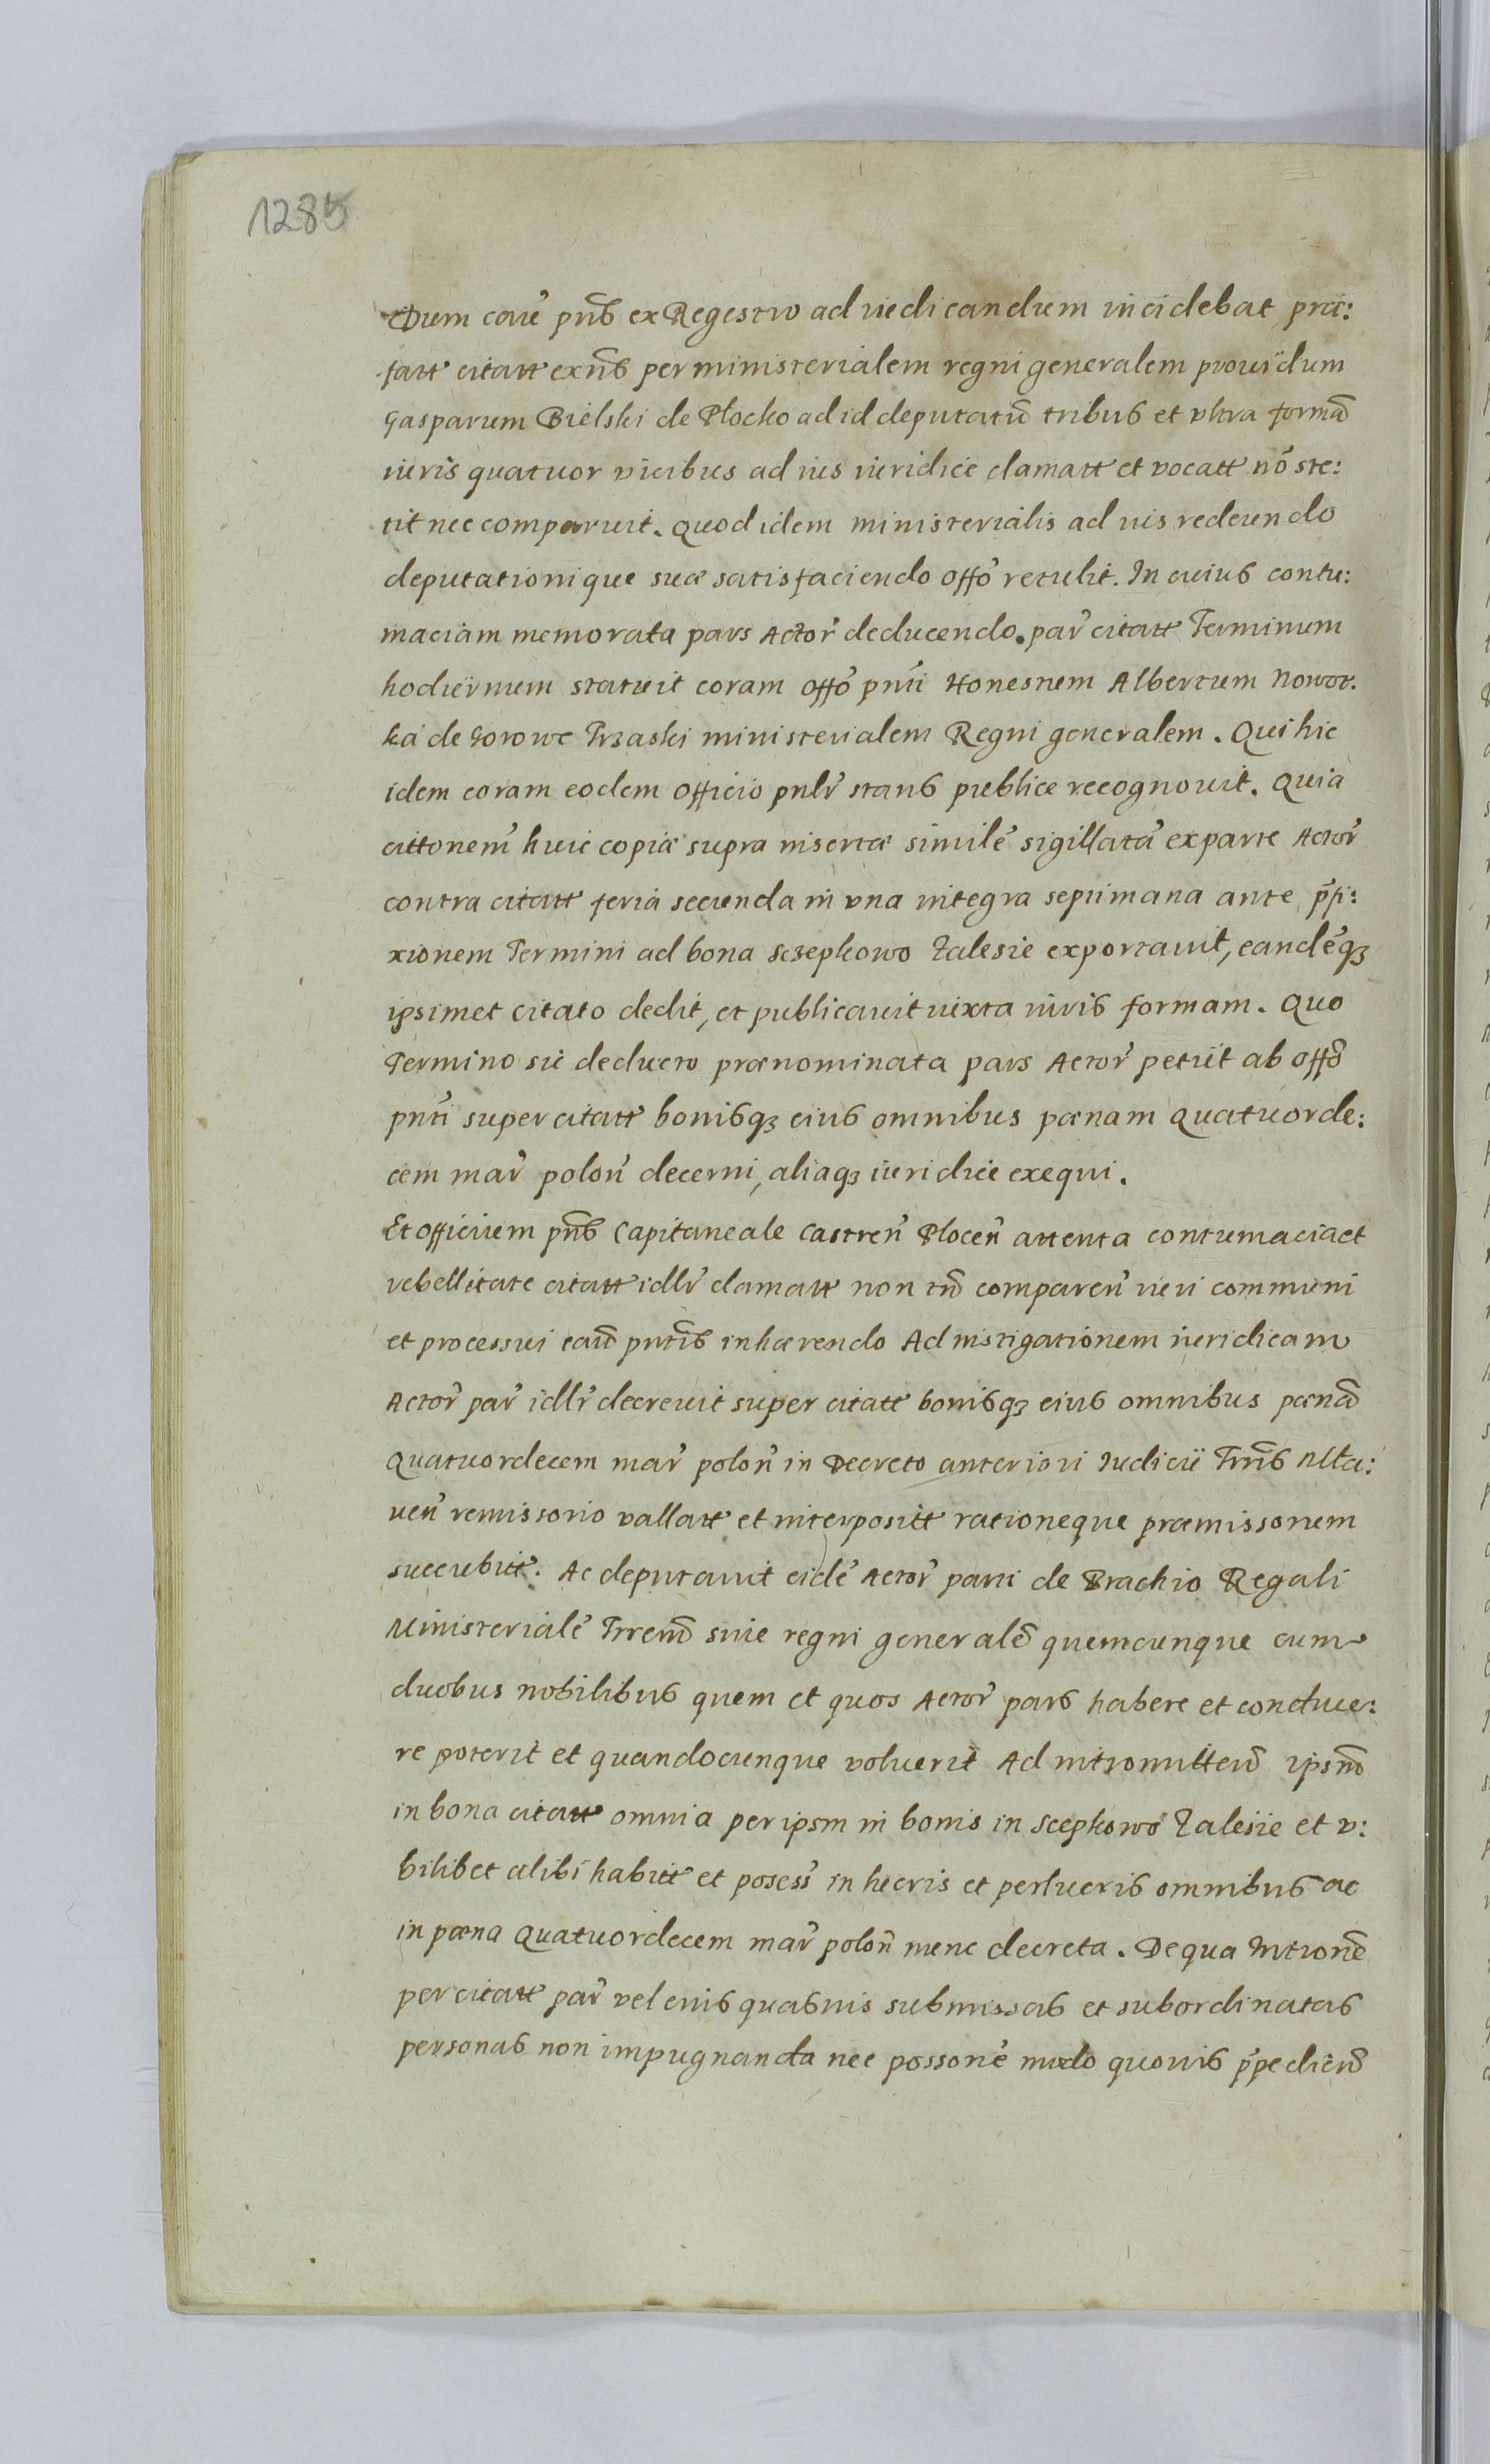 1285
Dum caue pñs ex Regestro ad iudicandum incidebat præ:
fatt citatt exñs per ministerialem regni generalem prouidum
Gasparum Bielski de Płocko ad id deputatũ tribus et vltra formã
iuris quatuor vicibus ad ius iuridice clamatt et vocatt nõ ste:
tit nec comparuit. Quod idem ministerialis ad ius redeundo
deputationique suæ satisfaciendo offõ retulit. In cuius contu:
maciam memorata pars Actor̃ deducendo par̃ citatt Terminum
hodiernum statuit coram offõ pñti Honestum Albertum Nowot.
ka de Gorowe Trzaski ministerialem Regni generalem. Qui hic
idem coram eodem Officio pnlr̃ stans publice recognouit. Quia
cittonem̃ huic copiæ supra insertæ similẽ sigillatã ex parte Actor̃
contra citatt feria secunda in vna integra septimana ante p̃fi:
xionem Termini ad bona Sczepkowo Zalesie exportauit, eandẽq3
ipsimet citato dedit, et publicauit iuxta iuris formam. Quo
Termino sic deducto prænominata pars Actor̃ petiit ab offõ
pñti super citatt bonisq3 eius omnibus pænam quatuorde:
cem mar̃ polon̄ decerni, aliaq3 iuridice exequi.
Et officium pñs Capitaneale Castren̄ Plocen̄ attenta contumacia et
rebellitate citatt idlr̃ clamatt non tñ comparen̄ iuri communi
et processui caũ pntis inhærendo Ad instigationem iuridicam
Actor̃ par̃ idlr̃ decreuit super citatt bonisq3 eius omnibus pænã
Quatuordecem mar̃ polon̄ in Decreto anteriori Iudicii Trñs Mła:
uen̄ remissorio vallatt et interpositt rationeque præmissorum
succubuit. Ac deputauit eidẽ Actor̃ parti de Brachio Regali
Ministerialẽ Trrenũ siue regni generalẽ quemcunque cum
duobus nobilibus quem et quos Actor̃ pars habere et conduce:
re poterit et quandocunque voluerit Ad intromittenũ ipsm̃
in bona citatt omnia per ipsm in bonis in Scepkowo Zalesie et v:
bilibet alibi habitt et posess̃ in lucris et perlucris omnibus ac
in pæna Quatuordecem mar̃ polon̄ nunc decreta. De qua Intronẽ
per citatt par̃ vel eius quasuis submissas et subordinatas
personas non impugnanda nec possonẽ modo quouis p̃pediend̃